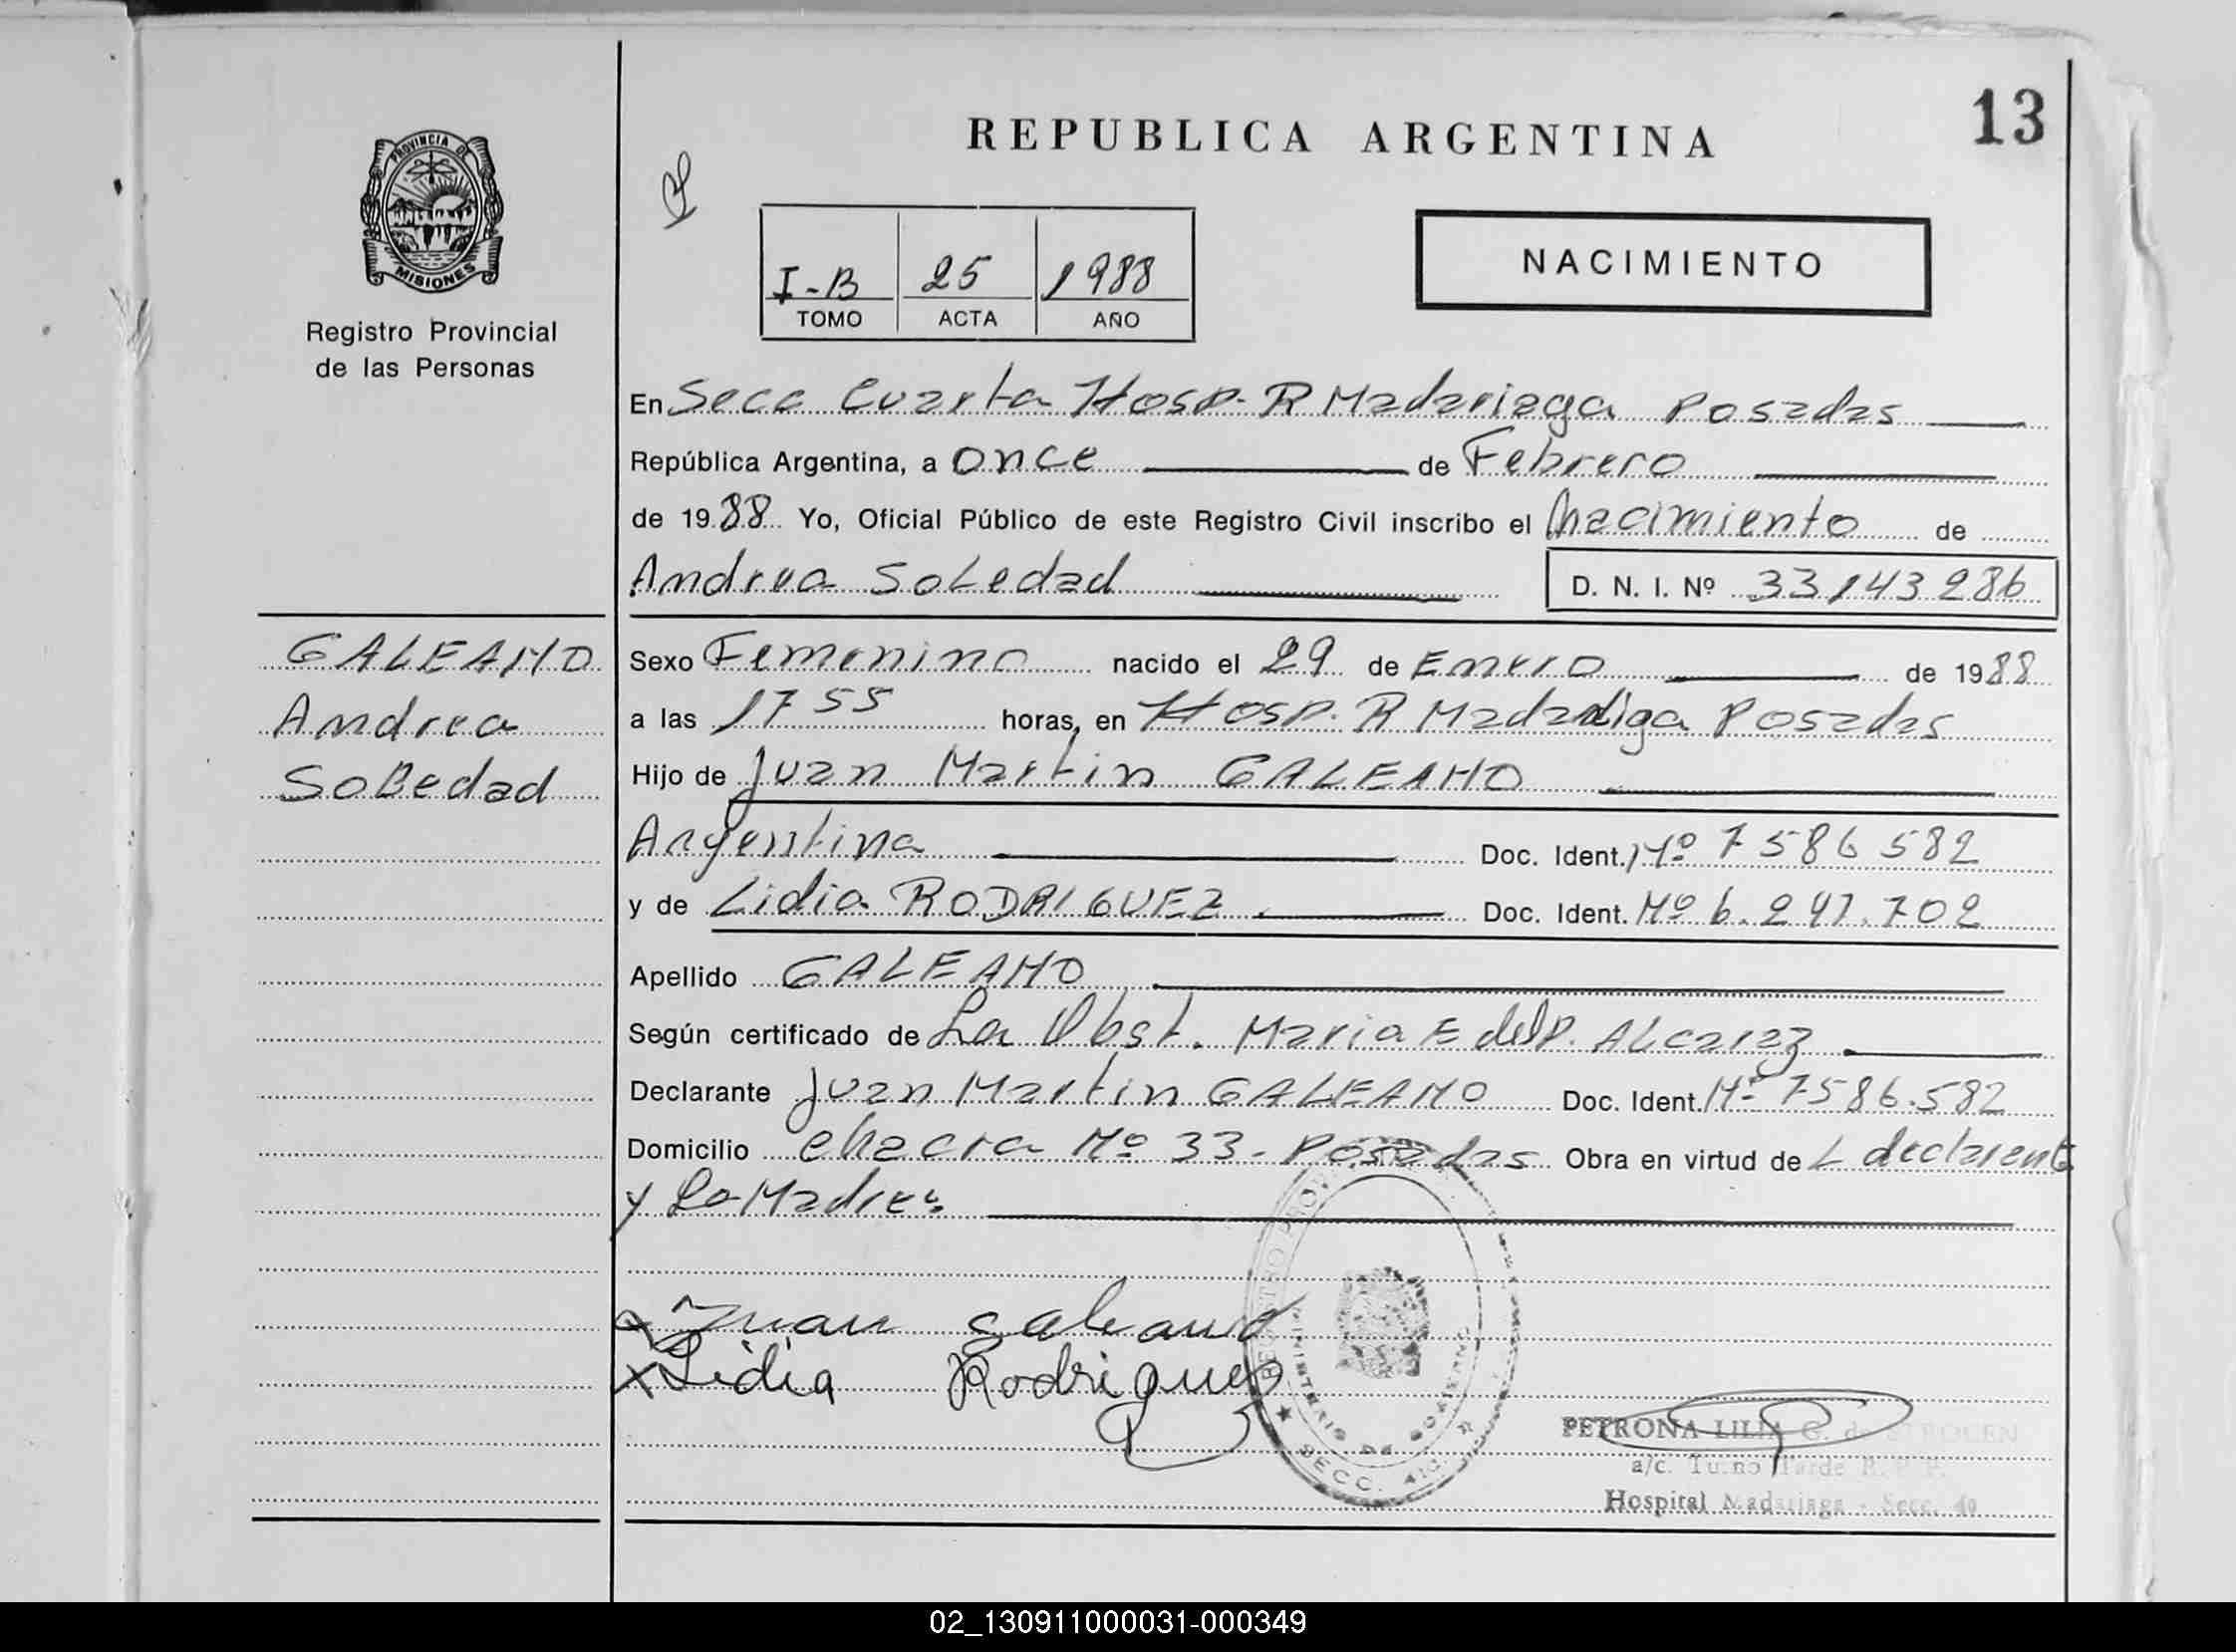 13
REPUBLICA ARGENTINA
PROVINCIA DE
MISIONES
Registro Provincial
de las Personas
NACIMIENTO
I-B 25 1988
TOMO ACTA AÑO
En Secc Cuarta Hosp. R Madariaga Posadas
República Argentina, a once de Febrero
de 1988 Yo, Oficial Público de este Registro Civil inscribo el Nacimiento de
Andrea Soledad D. N. I. Nº 33143286
GALEANO
Andrea
Soledad
Sexo Femenino nacido el 29 de Enero de 1988
a las 17 55 horas, en Hosp. R Madariga Posadas
Hijo de Juan Martin GALEANO
Argentina Doc. Ident. Nº 7586582
y de Lidia RODRIGUEZ Doc. Ident. Nº 6.247.702
Apellido GALEANO
Según certificado de La Obst. Maria E del P. Alcaraz
Declarante Juan Martin GALEANO Doc. Ident. Nº 7586.582
Domicilio chacra Nº 33 - Posadas Obra en virtud de L declarent
y La Madre:
Juan galeano
Lidia Rodriguez
SECC.
PETRONA LILIA G. de
a/c. Turno Tarde
Hospital Madariaga - Secc. 4a
02_130911000031-000349